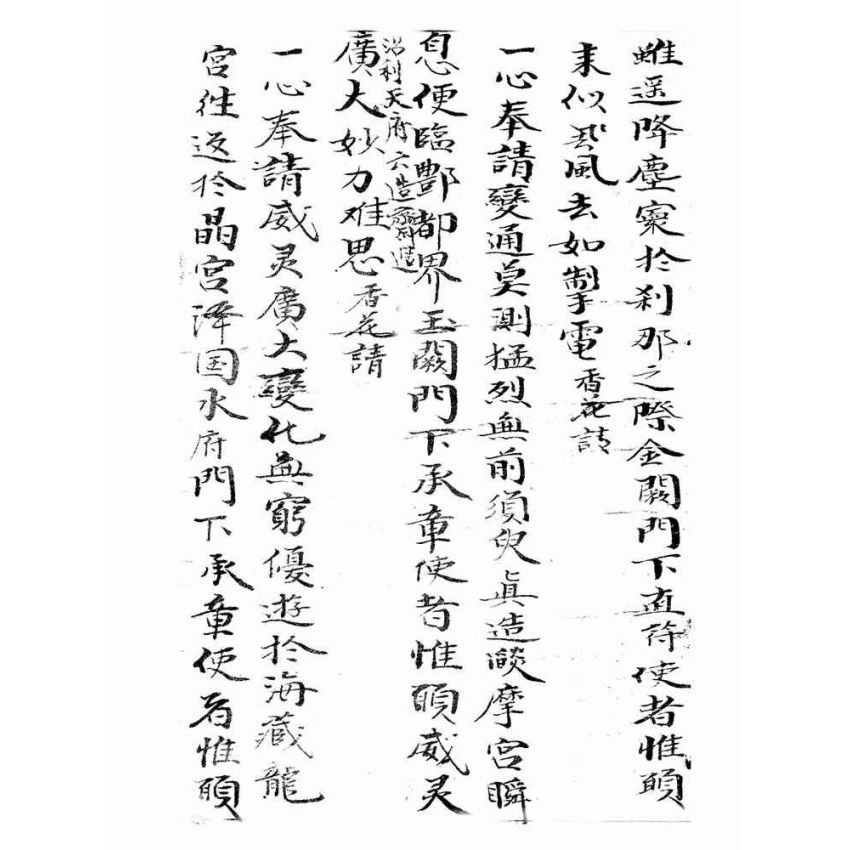 雖遥降塵寰於刹那之際金闕門下直符使者惟願
来似飛風去如掣電香花請
一心奉請變通莫測猛烈無前須臾真造燄摩宮瞬
息便臨酆都界玉闕門下承章使者惟願威灵
廣大妙力难思香花請
一心奉請威灵廣大變化無窮優遊於海藏龍
宮往返於晶宮泽国水府門下承章使者惟願